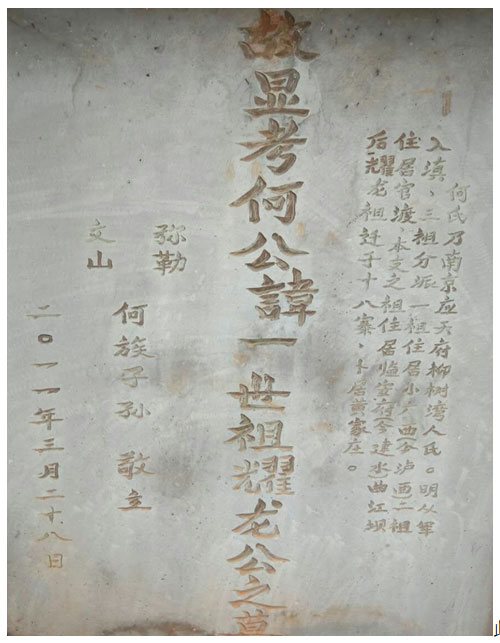 何氏乃南京应天府柳树湾人氏。明从军
入滇、三祖分派一祖住居小广西(今泸西)二祖
住居官渡、本支之祖住居临安府今建水曲江坝
后耀龙祖迁于十八寨、卜居黄家庄。
故显考何公諱一世祖耀龙公之墓
弥勒
文山
何族子孙 敬立
二〇一一年三月二十八日